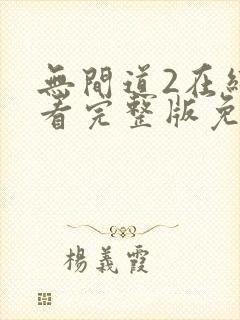 無間道2在
看完整版免
楊義霞